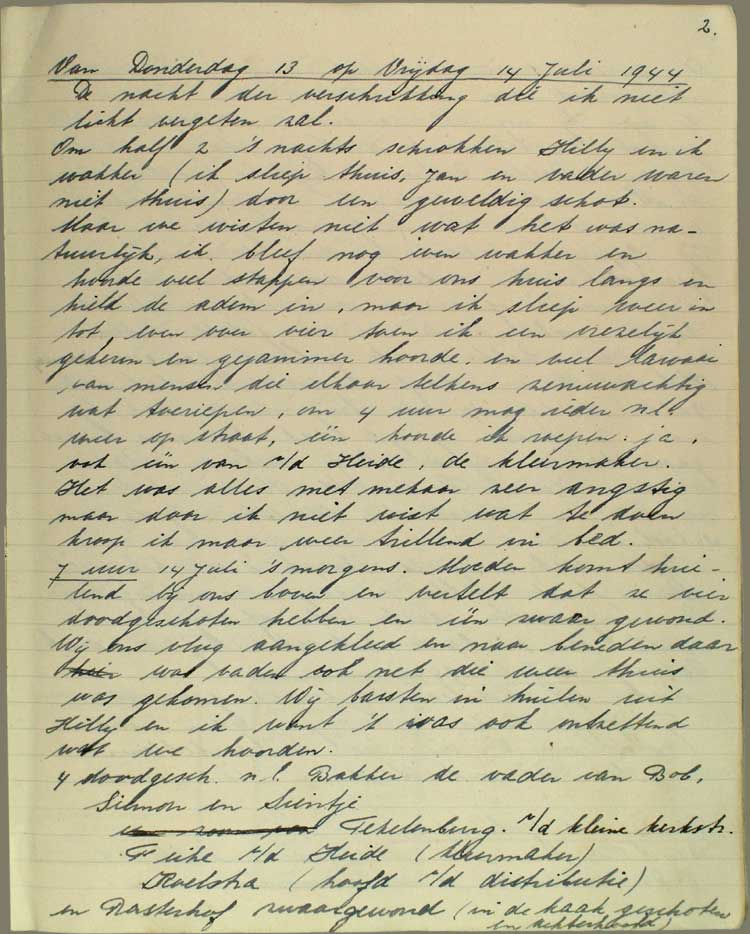 2.
Van Donderdag 13 op Vrijdag 14 Juli 1944
De nacht der verschrikking die ik niet
licht vergeten zal.
Om half 2 's nachts schrokken Hilly en ik
wakker (ik sliep thuis, Jan en vader waren
niet thuis) door een geweldig schot.
Maar we wisten niet wat het was na-
tuurlijk, ik bleef nog even wakker en
hoorde veel stappen voor ons huis langs en
hield de adem in, maar ik sliep weer in
tot even over vier toen ik een vreselijk
gekerm en gejammer hoorde, en veel lawaai
van mensen die elkaar telkens zenuwachtig
wat toeriepen, om 4 uur mag ieder nl.
weer op straat, één hoorde ik roepen: ja,
ook één van v/d Heide, de kleermaker.
Het was alles met mekaar zeer angstig
maar daar ik niet wist wat te doen
kroop ik maar weer trillend in bed.
7 uur 14 Juli 's morgens. Moeder komt hui-
lend bij ons boven en vertelt dat ze vier
doodgeschoten hebben en één zwaar gewond.
Wij ons vlug aangekleed en naar beneden daar
was vader ook net die weer thuis
was gekomen. Wij barsten in huilen uit
Hilly en ik want 't was ook ontzettend
wat we hoorden.
4 doodgesch. n.l. Bakker de vader van Bob,
Siemon en Sientje
Tekelenburg. v/d kleine kerkstr.
Feike v/d Heide (kleermaker)
Roelstra (hoofd v/d distributie)
en zwaargewond (in de kaak geschoten
en achterhoofd)